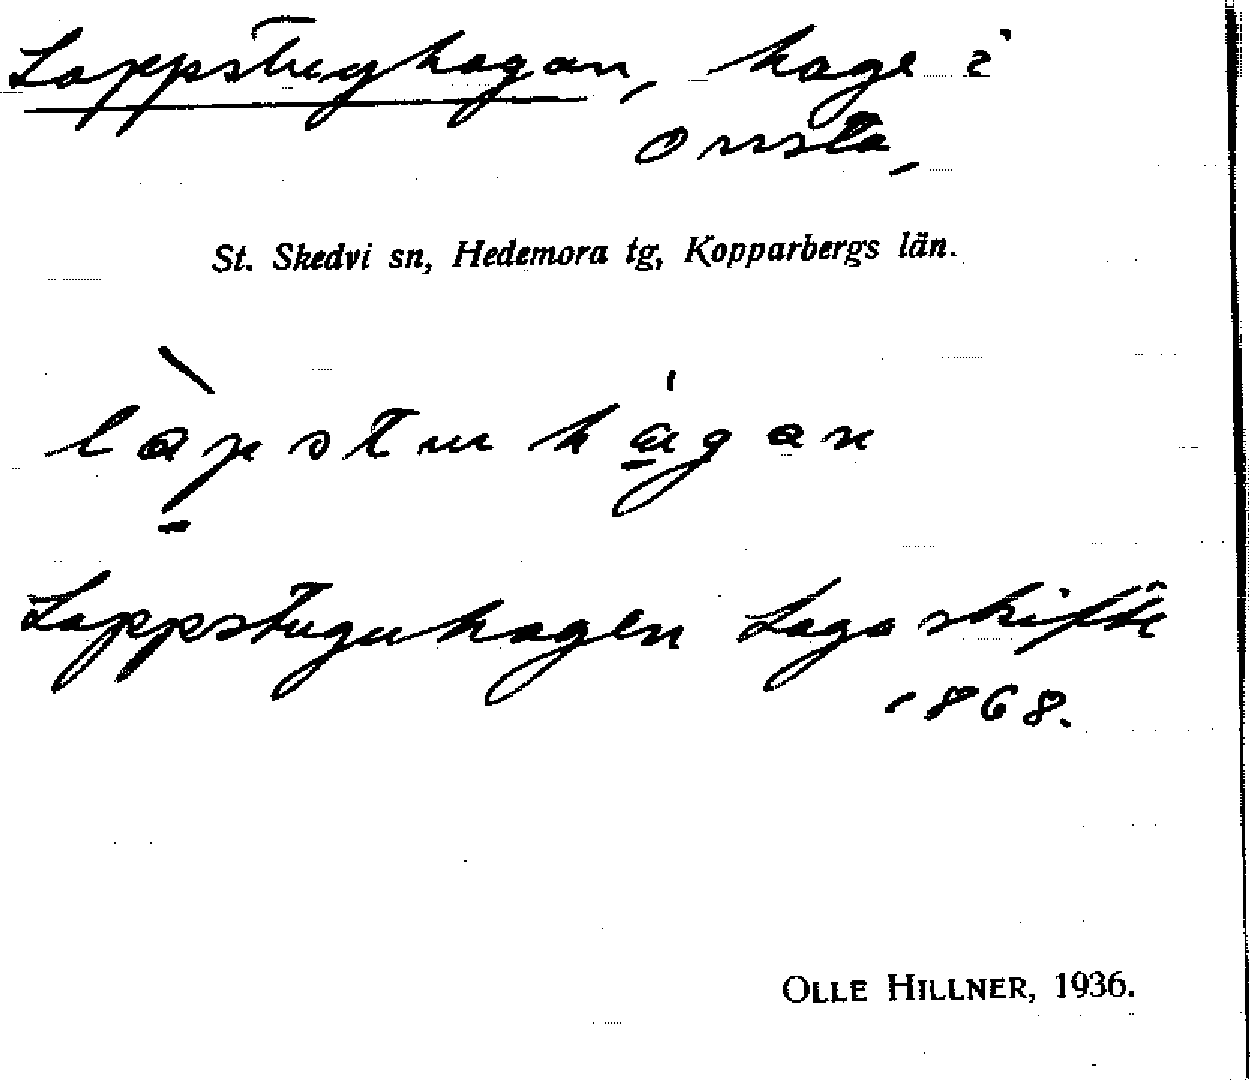 Lappstughagan, hage i
Onsta,
St. Skedvi sn, Hedemora tg, Kopparbergs län.
làpstuhágan
Lappstuguhagen Laga skifte
1868.
OLLE HILLNER, 1936.